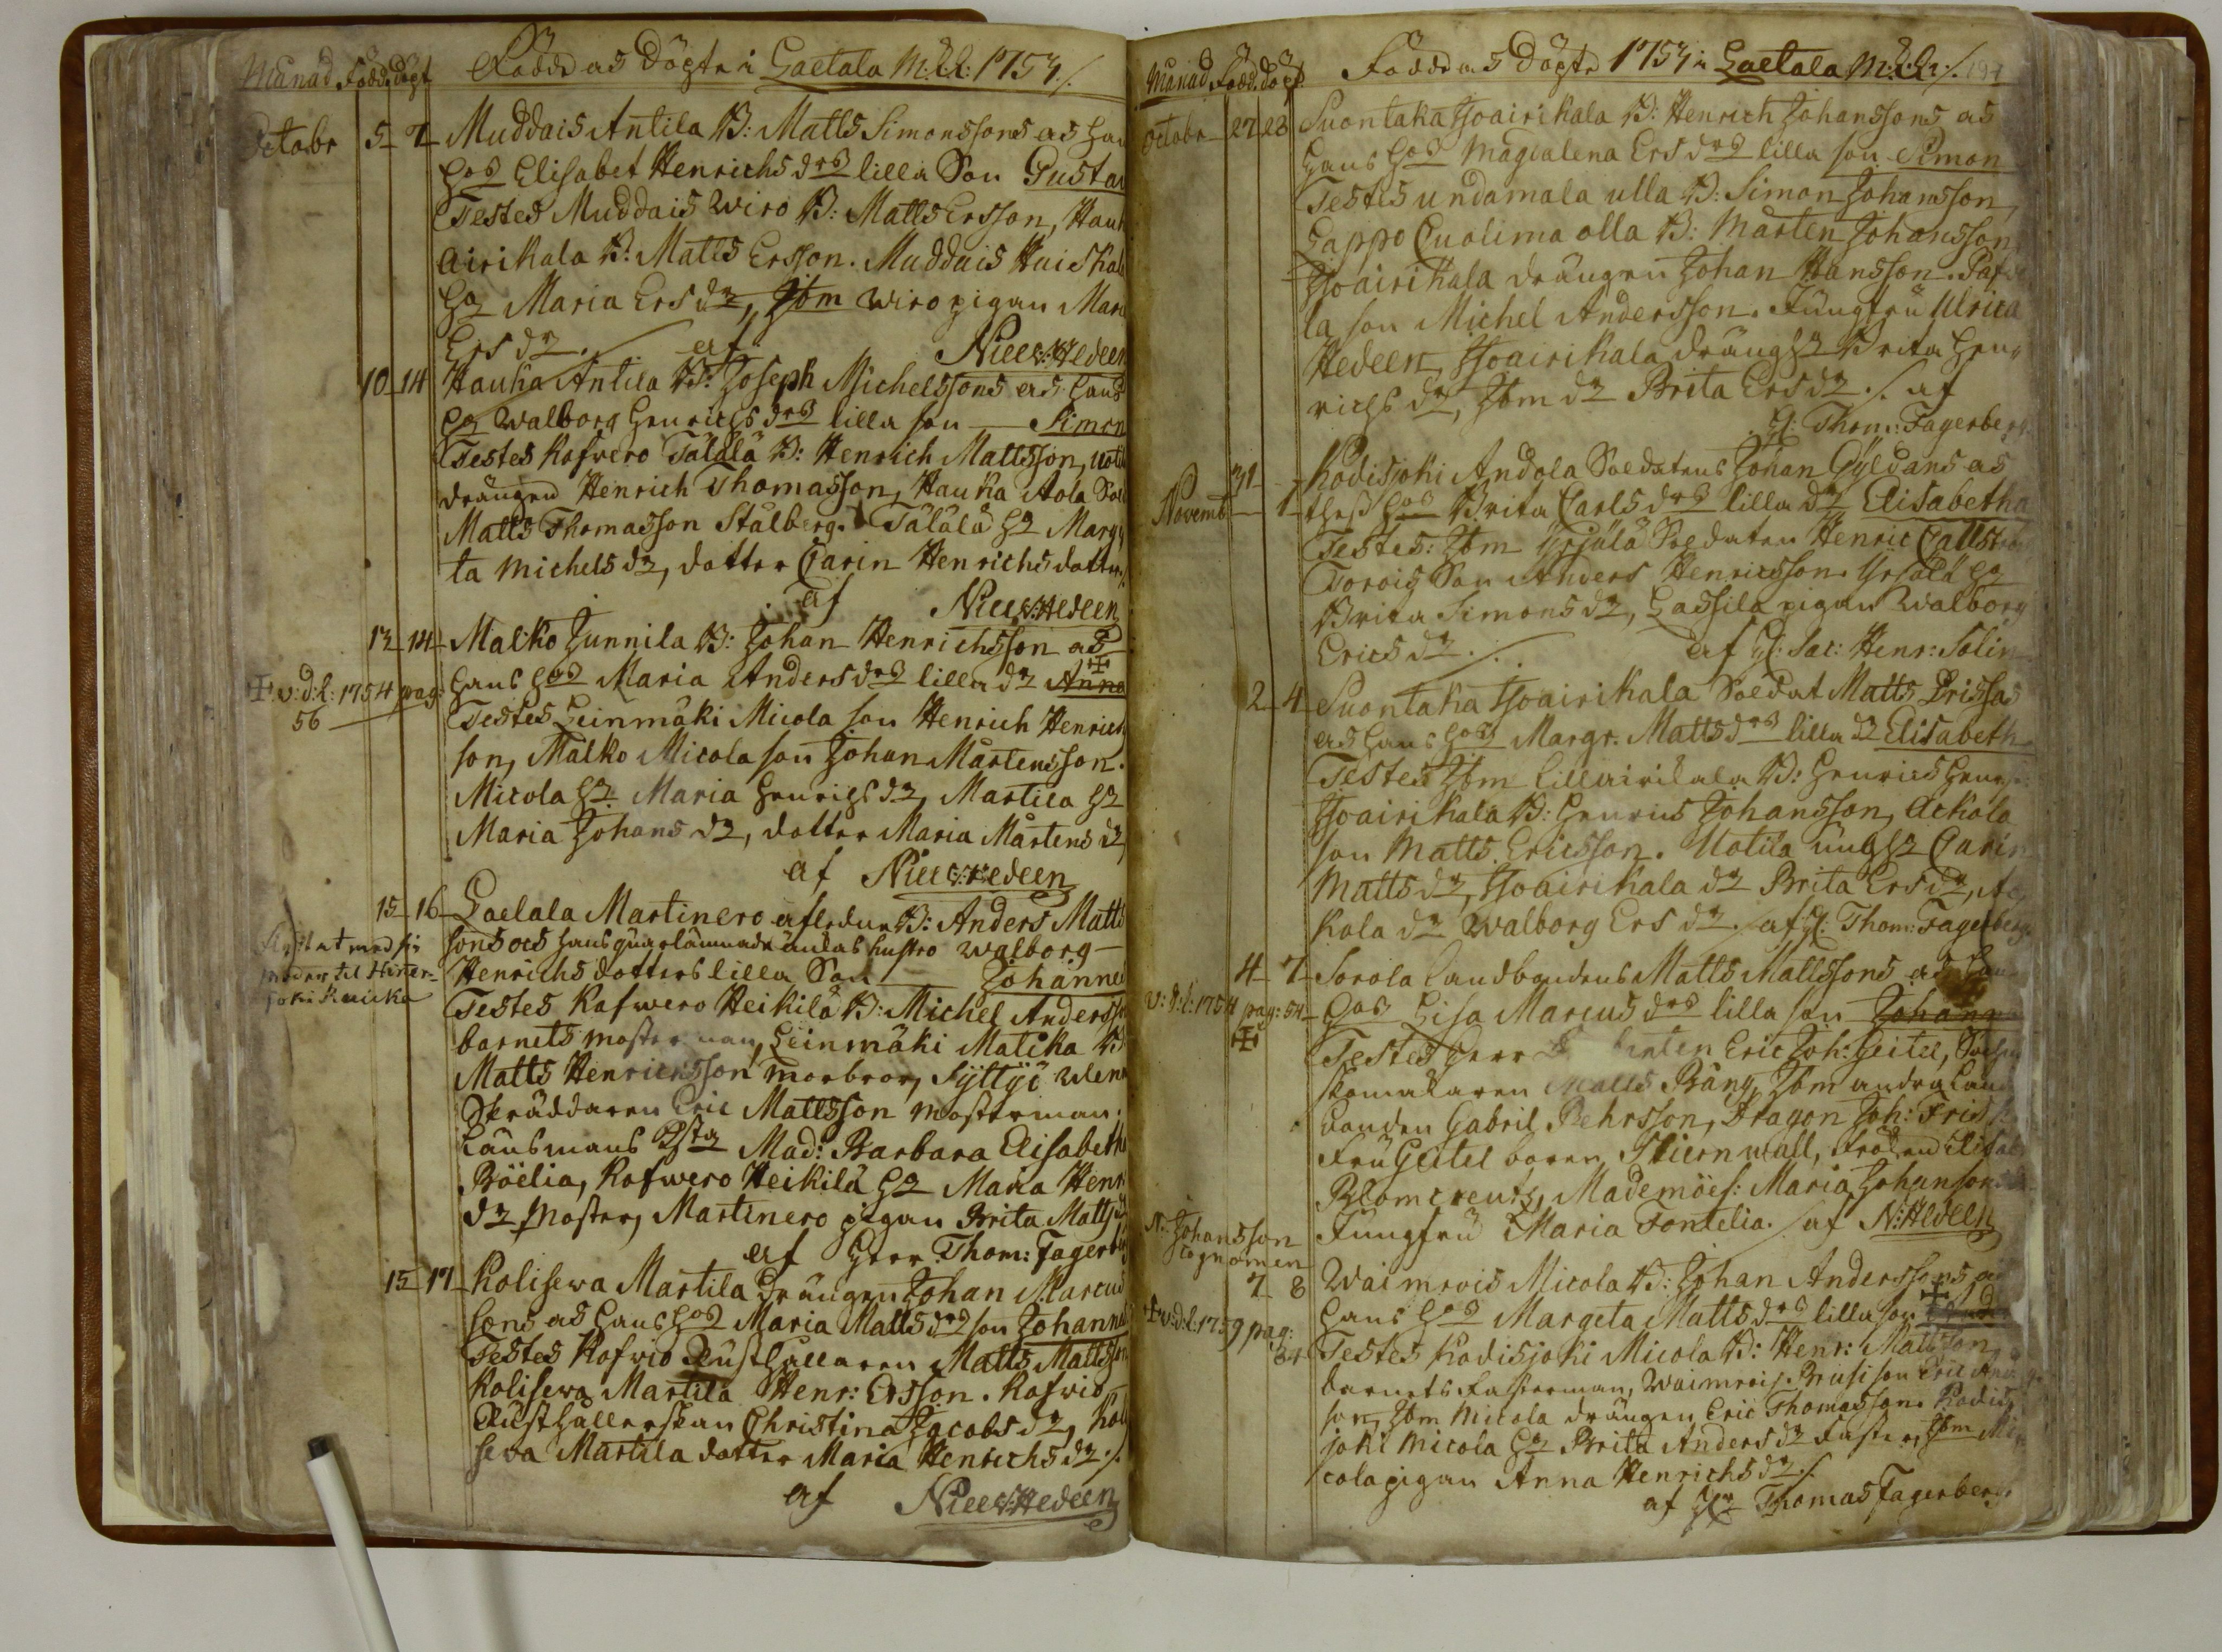 Månad Född. döpt Födde as Döpte i Laetala M:K: 1753 ./.
October 5 7 Muddais Antila B: Matts Simonssons as
hos Elisabet Henrichs drs lilla Son Gustav
Testes Muddais Wiro B: Matts Ersson, Hauk
airikala B: Matts Ersson. Muddais Huiskala
Hu Maria Ersdr, Ibm Wiro pigan Maria
Ersdr. ./. af Niels: Hedeen
10 14 Hauka Antila B: Joseph Michelssons as hans
Hu Walborg Henrichsdrs lilla son Simon
Testes Kafvero Tälälä B: Henrich Mattsson,
drängen Henrich Thomasson, Hauka Aola
Matts Thomasson Stålberg. Tälälä Hu Marg
ta Michelsdr, dotter Carin Henrichsdotter ./.
af Niels: Hedeen
13 14 Malko Junnila B: Johan Henrichsson as
✠ v:d:l: 1754 pag: hans hos Maria Andersdrs lilla dr Anna ✠
56 Testes Leinmäki Micola son Henrich Henrich
son, Malko Micola son Johan Mårtensson.
Micola Hu Maria Henrichsdr, Martila Hu
Maria Johansdr, dotter Maria Mårtensdr
af Niels: Hedeen
15 16 Laelala Martinero afledne B: Anders Matts
sons oes hans quarlämnade änkas hustro Walborg
moder til Hiner- Henrichsdotters lilla Son Johannes
joki Testes Kafwero Heikilä B: Michel Andersson
barnets moster man, Leinmäki Matika B:
Matts Henricksson morbror, Syttyi
Skräddaren Eric Mattsson mosterman.
Länsmans Mad: Barbara Elisabeth
Böelia, Kafwero Heikilä Hu Maria Henr
dr Moster, Martinero pigan Brita Matts
af Herr Thom: Fagerberg
15 17 Kolisewa Martila drängen Johan Marcus
sons as hans hos Maria Mattsdrs son Johannes
Testes Kafvio Rusthållaren Matts Mattsson
Kolisewa Martila Henr: Ersson. Kafvio
Rusthållerskan Christina Jacobsdr, Koli
sewa Martila dotter Maria Henrichsdr ./.
af Niels: Hedeen
Månad Född. döpt Födde as Döpte 1753 i Laetala M:K: ./. 194
October 27 28 Suontaka Isoairikala B: Henrich Johanssons as
hans hos Magdalena Ersdrs lilla son Simon
Testes undamala ulla B: Simon Johansson,
Lappo Cuolima olla B: Mårten Johansson
Isoairikala drängen Johan Hansson.
la son Michel Andersson. Jungfru Ulrica
Hedeen, Isoairikala dräng Hu Brita Hen
richsdr, Ibm dr Brita Ersdr ./. af
H: Thom: Fagerberg
31 Kodisjoki Andola Soldatens Johan Gyldans as
Novemb 1 thess hos Brita Carlsdrs lilla dr Elisabetha
Testes: Ibm Yrjälä Soldaten Henric Callström
Torois Son Anders Henricsson. Yrjälä Hu
Brita Simonsdr, Lassila pigan Walborg
Ericsdr. ./. af H: Sac: Henr: Solin
2 4 Suontaka Isoairikala Soldat Matts Prissas
as hans hos Margr. Mattsdrs lilla dr Elisabeth
Testes Ibm Lillairikala B: Henrics
Isoairikala B: Henrics Johansson, Ackola
son Matts Ericsson. Uotila ung Hu Carin
Mattsdr, Isoairikala dr Brita Ersdr, Ac
kola dr Walborg Ersdr. ./. af H: Thom: Fagerberg
4 7 Sorola Landbondens Matts Mattssons as hans
v:d:l: 1754 pag: 54 hos Lisa Marcusdrs lilla son Johan
✠ Testes Herr Eric Joh: Geitel,
skomakaren Matts Bäng, Ibm andra Land
bonden Gabril Behrsson, Dragon Joh: Frisk
Fru Geitel boren Stiernwall, Fröken Elisab
Blomcreutz, Mademöes: Maria Johanson
N: Johansson Jungfru Maria Fontelia. ./. af N: Hedeen
cognomen
7 8 Waimrois Micola B: Johan Anderssons as
✠ v:d:l: 1759 pag: hans hos Margeta Mattsdrs lilla son ✠
84 Testes Kodisjoki Micola B: Henr: Mattsson
barnets Fasterman, Waimrois Prusi son Eric And
son, Ibm Micola drängen Eric Thomasson. Kodis
joki Micola Hu Brita Andersdr Faster, Ibm Mi
cola pigan Anna Henrichsdr ./.
af Hr Thomas Fagerberg